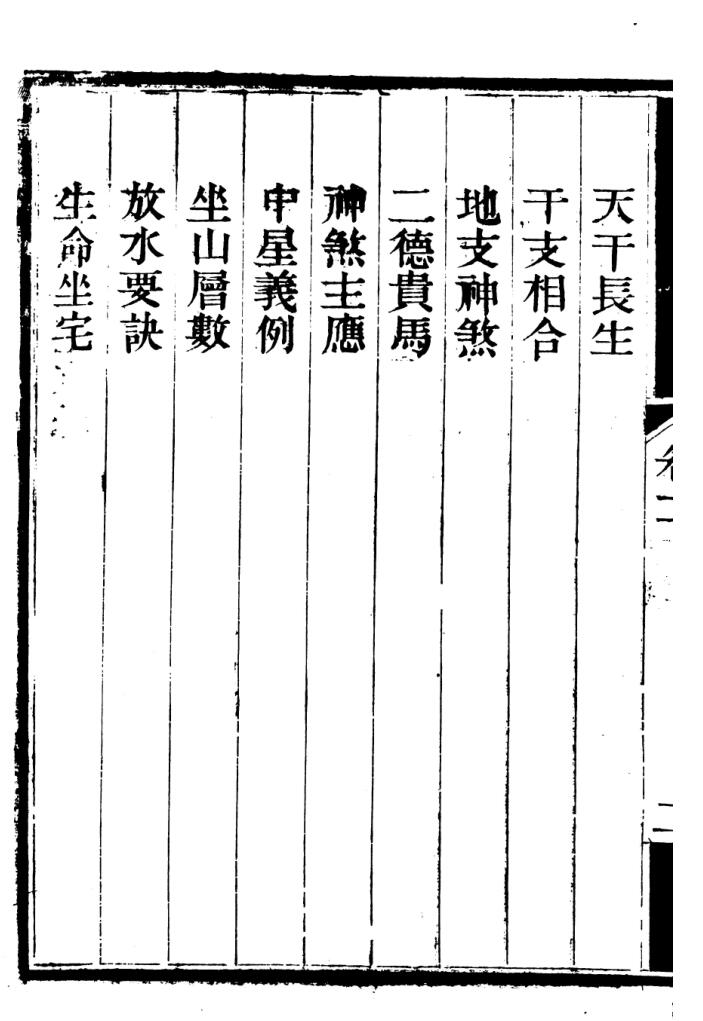 天干長生
干支相合
地支神煞
二德貴馬
神煞主應
中星義例
坐山層數
放水要訣
生命坐宅
二